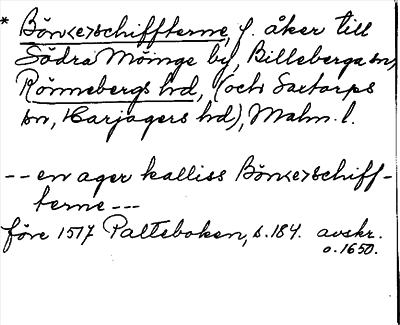 * Bönce>schiffterne, f. åker till
Södra Möinge by, Billeberga sn,
Rönnebergs hd, (och Saxtorps
sn, Harjagers hd), Malm. l.
-- en ager kalliss Bönce>schiff-
terne ---
före 1517 Palteboken, s. 184. avskr.
o. 1650.